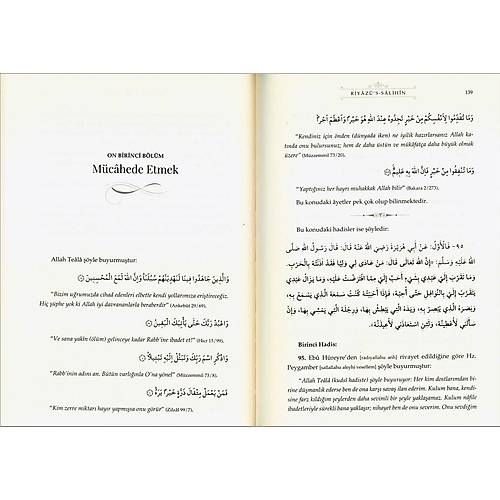 ON BİRİNCİ BÖLÜM
Mücâhede Etmek
Allah Teâlâ şöyle buyurmuştur:
وَالَّذِينَ جَاهَدُوا فِينَا لَنَهْدِيَنَّهُمْ سُبُلَنَا وَإِنَّ اللَّهَ لَمَعَ الْمُحْسِنِينَ
“Bizim uğrumuzda cihad edenleri elbette kendi yollarımıza eriştireceğiz.
Hiç şüphe yok ki Allah iyi davrananlarla beraberdir” (Ankebût 29/69).
وَاعْبُدْ رَبَّكَ حَتَّى يَأْتِيَكَ الْيَقِينُ
“Ve sana yakîn (ölüm) gelinceye kadar Rabb'ine ibadet et!” (Hicr 15/99).
وَاذْكُرِ اسْمَ رَبِّكَ وَتَبَتَّلْ إِلَيْهِ تَبْتِيلًا
“Rabb'inin adını an. Bütün varlığınla O'na yönel” (Müzzemmil 73/8).
فَمَنْ يَعْمَلْ مِثْقَالَ ذَرَّةٍ خَيْرًا يَرَهُ
“Kim zerre miktarı hayır yapmışsa onu görür” (Zilzâl 99/7).
RİYÂZÜ'S-SÂLİHÎN
139
وَمَا تُقَدِّمُوا لِأَنْفُسِكُمْ مِنْ خَيْرٍ تَجِدُوهُ عِنْدَ اللَّهِ هُوَ خَيْرًا وَأَعْظَمَ أَجْرًا
“Kendiniz için önden (dünyada iken) ne iyilik hazırlarsanız Allah ka-
tında onu bulursunuz; hem de daha üstün ve mükâfatça daha büyük olmak
üzere” (Müzzemmil 73/20).
وَمَا تُنْفِقُوا مِنْ خَيْرٍ فَإِنَّ اللَّهَ بِهِ عَلِيمٌ
“Yaptığınız her hayrı muhakkak Allah bilir” (Bakara 2/273).
Bu konudaki âyetler pek çok olup bilinmektedir.
Bu konudaki hadisler ise şöyledir:
٩٥ - فَالْأَوَّلُ: عَنْ أَبِي هُرَيْرَةَ رَضِيَ اللَّهُ عَنْهُ قَالَ: قَالَ رَسُولُ اللَّهِ صَلَّى
اللَّهُ عَلَيْهِ وَسَلَّمَ: «إِنَّ اللَّهَ تَعَالَى قَالَ: مَنْ عَادَى لِي وَلِيًّا فَقَدْ آذَنْتُهُ بِالْحَرْبِ.
وَمَا تَقَرَّبَ إِلَيَّ عَبْدِي بِشَيْءٍ أَحَبَّ إِلَيَّ مِمَّا افْتَرَضْتُ عَلَيْهِ، وَمَا يَزَالُ عَبْدِي
يَتَقَرَّبُ إِلَيَّ بِالنَّوَافِلِ حَتَّى أُحِبَّهُ، فَإِذَا أَحْبَبْتُهُ كُنْتُ سَمْعَهُ الَّذِي يَسْمَعُ بِهِ،
وَبَصَرَهُ الَّذِي يُبْصِرُ بِهِ، وَيَدَهُ الَّتِي يَبْطِشُ بِهَا، وَرِجْلَهُ الَّتِي يَمْشِي بِهَا، وَإِنْ
سَأَلَنِي أَعْطَيْتُهُ، وَلَئِنِ اسْتَعَاذَنِي لَأُعِيذَنَّهُ»
Birinci Hadis:
95. Ebû Hüreyre'den [radıyallahu anh] rivayet edildiğine göre Hz.
Peygamber [sallallahu aleyhi vesellem] şöyle buyurmuştur:
“Allah Teâlâ (kudsî hadiste) şöyle buyuruyor: Her kim dostlarımdan bi-
rine düşmanlık ederse ben de ona karşı harp ilan ederim. Kulum bana, kendi-
sine farz kıldığım şeylerden daha sevimli bir şeyle yaklaşamaz. Kulum nâfile
ibadetleriyle sürekli bana yaklaşır; nihayet ben onu severim. Onu sevdiğim